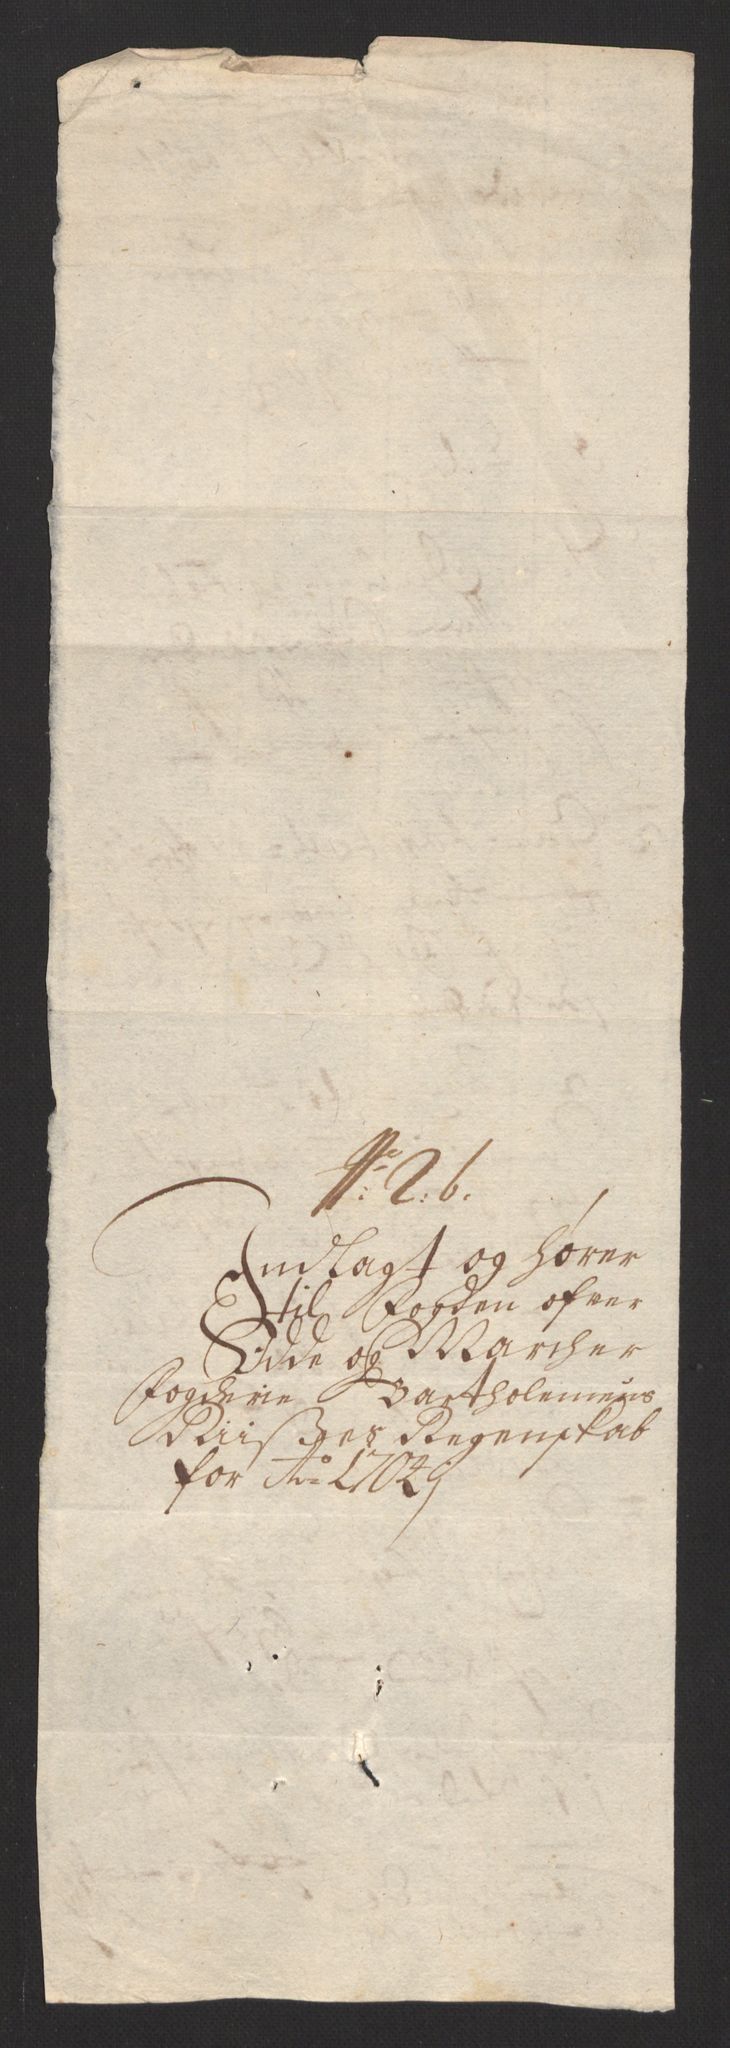 No: 2: 6.
Indlagt og hører
til fogden ofver
Idde og Marcher
fogderie Bartholemeus
Riisses Regenskab
for Ao 1704